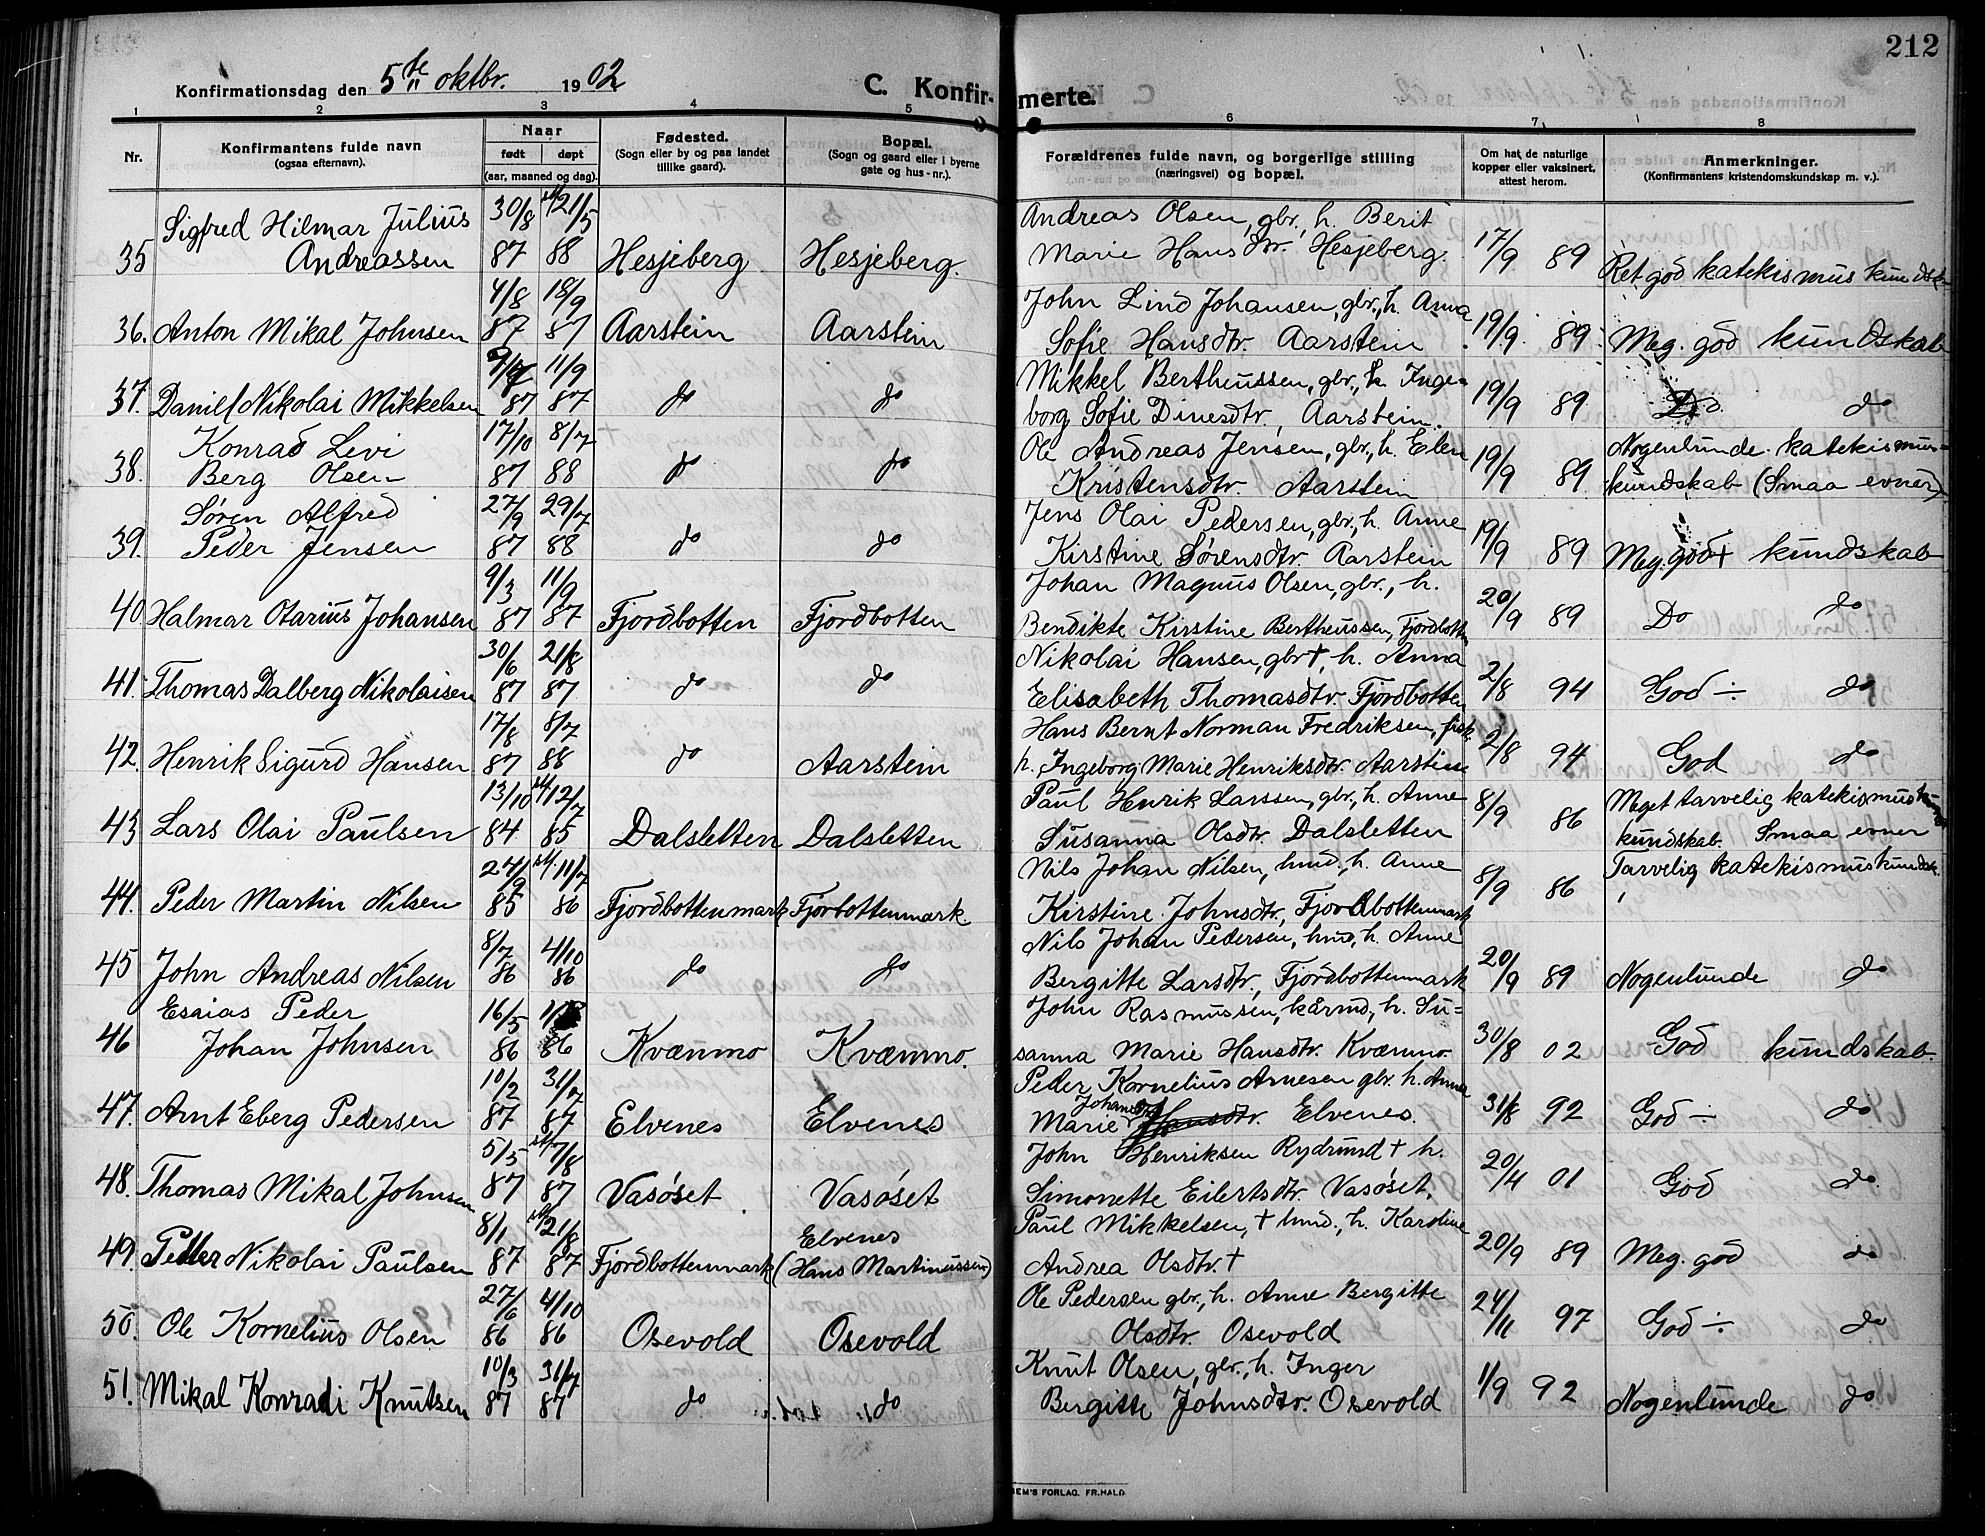 212
Konfirmationsdag den 5te oktbr. 1902 C. Konfir- merte.
1 2 3 4 5 6 7 8
Nr. Konfirmantens fulde navn (ogsaa efternavn). Naar født døpt (aar, maaned og dag). Fødested. (Sogn eller by og paa landet tillike gaard). Bopæl. (Sogn og gaard eller i byerne gate og hus-nr.). Forældrenes fulde navn, og borgerlige stilling (næringsvei) og bopæl. Om hat de naturlige kopper eller vaksinert, attest herom. Anmerkninger. (Konfirmantens kristendomskundskap m. v.).
Sigfred Hilmar Julius 30/8 21/5 Andreas Olsen, gbr., h. Berit
35 Andreassen 87 88 Hesjeberg Hesjeberg. Marie Hansdtr. Hesjeberg 17/9 89 Ret god katekismuskundsk.
4/8 18/9 John Lind Johansen, gbr., h. Anna
36. Anton Mikal Johnsen 87 87 Aarstein Aarstein Sofie Hansdtr. Aarstein 19/9 89 Meg. god kundskab
11/9 Mikkel Bertheussen, gbr., h. Inge-
37. Daniel Nikolai Mikkelsen 87 87 do do borg Sofie Dinesdtr., Aarstein. 19/9 89 Do do
Konrad Levi 17/10 8/7 Ole Andreas Jensen, gbr., h. Elen Nogenlunde katekismus-
38. Berg Olsen 87 88 do do Kristensdtr. Aarstein 19/9 89 kundskab (Smaa evner)
Søren Alfred 27/9 29/7 Jens Olai Pedersen, gbr., h. Anne
39. Peder Jensen 87 88 do do Kirstine Sørensdtr. Aarstein 19/9 89 Meg. god + kundskab
9/3 11/9 Johan Magnus Olsen, gbr., h.
40. Halmar Otarius Johansen 87 87 Fjordbotten Fjordbotten Bendikte Kirstine Bertheussen, Fjordbotten 20/9 89 Do do
30/6 21/8 Nikolai Hansen, gbr †, h. Anna
41. Thomas Dalberg Nikolaisen 87 87 do do Elisabeth Thomasdtr. Fjordbotten 2/8 94 God ÷ do
17/8 8/7 Hans Bernt Norman Fredriksen, fisk.
42. Henrik Sigurd Hansen 87 88 do Aarstein h. Ingeborg Marie Henriksdtr. Aarstein 2/8 94 God do
13/10 12/7 Paul Henrik Larssen, gbr., h. Anne Meget tarvelig katekismus
43 Lars Olai Paulsen 84 85 Dalsletten Dalsletten Susanna Olsdtr. Dalsletten 8/9 86 kundskab. Smaa evner
24/9 11/7 Nils Johan Nilsen, hmd., h. Anne Tarvelig katekismuskundsk.
44. Peder Martin Nilsen 85 86 Fjordbottenmark Fjorbottenmark. Kirstine Johnsdtr., Fjordbottenmark 8/9 86
8/7 4/10 Nils Johan Pedersen, hmd., h. Anne
45 John Andreas Nilsen 86 86 do do Bergitte Larsdtr., Fjordbottenmark 20/9 89 Nogenlunde do
Esaias Peder 16/5 John Rasmussen, kårmd., h. Su=
46 Johan Johnsen 86 86 Kvænmo Kvænmo. sanna Marie Hansdtr. Kvænmo. 30/8 02 God kundskab.
10/2 31/7 Peder Kornelius Arnesen gbr. h. Anne
47. Arnt Eberg Pedersen 87 87 Elvenes Elvenes Marie Johansdtr. Hansdtr. Elvenes. 31/8 92 God ÷ do
5/5 7/8 John Henriksen Rydmund † h.
48. Thomas Mikal Johnsen 87 87 Vasøset Vasøset Simonette Eilertsdtr. Vasøset. 20/4 01 God do.
8/1 21/8 Elvenes Paul Mikkelsen, † hmd., h. Karoline
49. Peder Nikolai Paulsen 87 87 Fjordbottenmark (Hans Martinussen) Andrea Olsdtr. † 20/9 89 Meg. god do
27/6 4/10 Ole Pedersen gbr., h. Anne Bergitte
50. Ole Kornelius Olsen 86 86 Osevold Osevold Olsdtr. Osevold 24/11 97 God ÷ do
10/3 31/7 Knut Olsen, gbr., h. Inger
51. Mikal Konradi Knutsen 87 87 do do Bergitte Johnsdtr. Osevold 1/9 92 Nogenlunde do
SEM'S FORLAG. FR.HALD